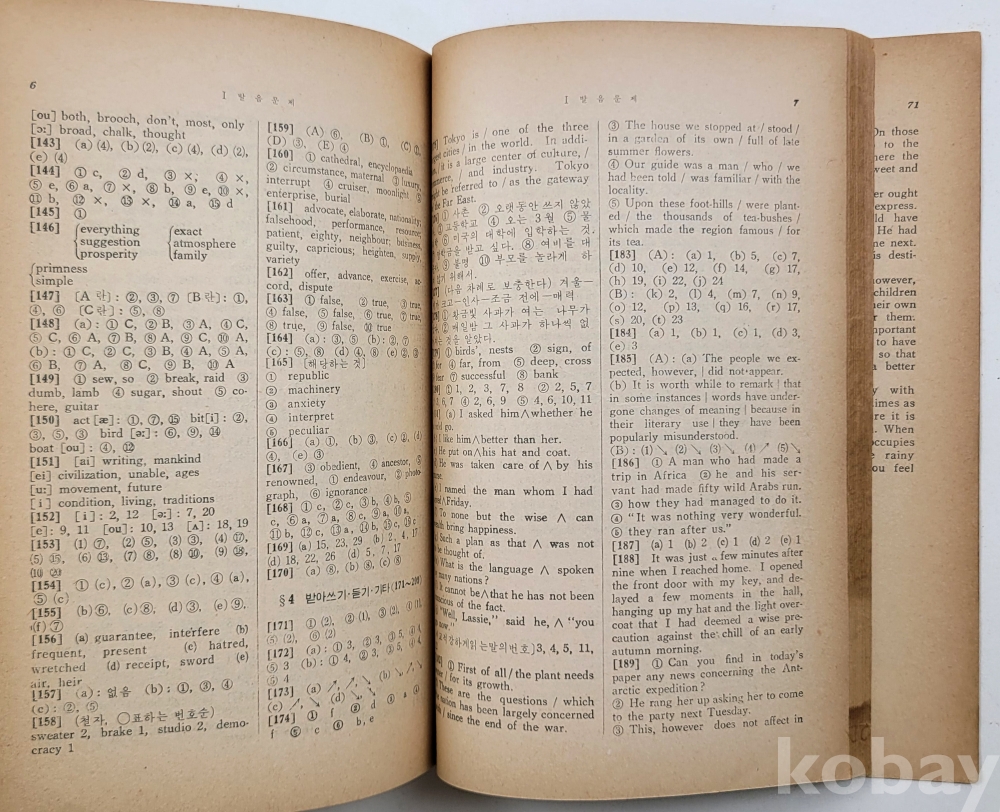 6
I 발 음 문 제
[ou] both, brooch, don't, most, only
[ɔ:] broad, chalk, thought
[143] (a) (4), (b) (2), (c) (4), (d) (2),
(e) (4)
[144] ① c, ② d, ③ ×, ④ ×,
⑤ e, ⑥ a, ⑦ ×, ⑧ b, ⑨ e, ⑩ ×,
⑪ b, ⑫ ×, ⑬ ×, ⑭ a, ⑮ d
[145] ①
[146] {everything {exact
suggestion atmosphere
prosperity family
{primness
simple
[147] [A 란] : ②, ③, ⑦ [B 란] : ①,
④, ⑥ [C 란] : ⑤, ⑧
[148] (a) : ① C, ② B, ③ A, ④ C,
⑤ C, ⑥ A, ⑦ B, ⑧ A, ⑨ C, ⑩ A,
(b) : ① C, ② C, ③ B, ④ A, ⑤ A,
⑥ B, ⑦ A, ⑧ C, ⑨ B, ⑩ A
[149] ① sew, so ② break, raid ③
dumb, lamb ④ sugar, shout ⑤ co-
here, guitar
[150] act [æ] : ①, ⑦, ⑮ bit[i] : ②,
③, ⑤, ③ bird [ə:] : ⑥, ⑨, ⑭
boat [ou] : ④, ⑫
[151] [ai] writing, mankind
[ei] civilization, unable, ages
[u:] movement, future
[i] condition, living, traditions
[152] [i] : 2, 12 [ə:] : 7, 20
[e] : 9, 11 [ou] : 10, 13 [ʌ] : 18, 19
[153] (1) ⑦, (2) ⑤, (3) ③, (4) ⑰,
(5) ⑮, (6) ⑬, (7) ⑧, (8) ⑩, (9) ⑱,
(10)
[154] ① (c), ② (a), ③ (c), ④ (a),
⑤ (c)
[155] (b) ⑥, (c) ⑧, (d) ③, (e) ⑨,
(f) ⑦
[156] (a) guarantee, interfere (b)
frequent, present (c) hatred,
wretched (d) receipt, sword (e)
air, heir
[157] (a) : 없음 (b) : ①, ③, ④
(c) : ②, ⑤
[158] (철자, ○표하는 번호순)
sweater 2, brake 1, studio 2, demo-
cracy 1
[159] (A) ⑥, (B) ①, (C) ②,
(D) ③, (E) ④
[160] ① cathedral, encyclopaedia
② circumstance, maternal ③ luxury,
interrupt ④ cruiser, moonlight ⑤
enterprise, burial
[161] advocate, elaborate, nationality,
falsehood, performance, resource,
patient, eighty, neighbour, business,
guilty, capricious; heighten, supply,
variety
[162] offer, advance, exercise, ac-
cord, dispute
[163] ① false, ② true, ③ true,
④ false, ⑤ false, ⑥ true, ⑦ true,
⑧ true, ⑨ false, ⑩ true
[164] (a) : ③, ⑤ (b) : ②, ⑦
(c) : ⑤, ⑧ (d) ④, ⑧ (e) ②, ③
[165] [해당하는 것]
① republic
② machinery
③ anxiety
④ interpret
⑥ peculiar
[166] (a) ①, (b) ③, (c) ②, (d)
④, (e) ③
[167] ③ obedient, ④ ancestor, ⑤
renowned, ① endeavour, ② photo-
graph, ⑥ ignorance
[168] ① c, ② c, ③ b, ④ b, ⑤
c, ⑥ a, ⑦ a, ⑧ c, ⑨ a, ⑩ a,
⑪ b, ⑫ c, ⑬ a, ⑭ b, ⑮ c, ⑯ c
[169] (a) 15, 23, 29 (b) 2, 4, 17
(d) 18, 22, 26 (d) 5, 7, 17
[170] (a) ⑧, (b) ⑧, (c) ⑧
§ 4 받아쓰기·듣기·기타(171~200)
[171] ① (2), ② (1), ③ (2), ④ (1),
⑤ (2), ⑥ (2)
[172] (a) : ① 3, ② 3, ③ 5, ④ 4,
⑤ 3 (b) : ① 4, ② 3, ③ 5, ④ 4,
⑤ 4
[173] (a) ↗, ↗, ↘ (b) ↘, ↗, ↘
(c) ↗, ↘ (d) ↘
[174] ① f ② d ③ a ④
f ⑤ c ⑥ b, e
I 발 음 문 제
7
Tokyo is / one of the three
cities / in the world. In addi-
it is a large center of culture, /
and industry. Tokyo
be referred to / as the gateway
the Far East.
① 사촌 ② 오랫동안 쓰지 않았
③ 고등학교 ④ 오는 3월 ⑤ 물
⑥ 미국의 대학에 입학하는 것.
받고 싶다. ⑧ 여비를 대
⑨ 불명 ⑩ 부모를 놀라게 하
위해서.
(다음 차례로 보충한다) 겨울—
크고—인사—조금 전에—매력
① 황금빛 사과가 여는 나무가
② 매일밤 그 사과가 하나씩 없
것을 알았다.
① birds', nests ② sign, of
for ④ far, from ⑤ deep, cross
⑦ successful ⑧ bank
① 1, 2, 3, 7, 8 ② 2, 5, 7
6, 7 ④ 2, 6, 9 ⑤ 4, 6, 10, 11
(a) I asked him∧whether he
go.
I like him∧better than her.
He put on∧his hat and coat.
He was taken care of∧by his
I named the man whom I had
∧Friday.
To none but the wise ∧ can
bring happiness.
Such a plan as that ∧ was not
thought of.
What is the language ∧ spoken
many nations?
cannot be∧that he has not been
of the fact.
"Well, Lassie," said he, ∧ "you
now."
강하게읽는말의번호)3, 4, 5, 11,
① First of all / the plant needs
for its growth.
These are the questions / which
nation has been largely concerned
/ since the end of the war.
③ The house we stopped at / stood /
in a garden of its own / full of late
summer flowers.
④ Our guide was a man / who / we
had been told / was familiar / with the
locality.
⑤ Upon these foot-hills / were plant-
ed / the thousands of tea-bushes /
which made the region famous / for
its tea.
[183] (A) : (a) 1, (b) 5, (c) 7,
(d) 10, (e) 12, (f) 14, (g) 17,
(h) 19, (i) 22, (j) 24
(B) : (k) 2, (l) 4, (m) 7, (n) 9,
(o) 12, (p) 13, (q) 16, (r) 17,
(s) 20, (t) 23
[184] (a) 1, (b) 1, (c) 1, (d) 3,
(e) 3
[185] (A) : (a) The people we ex-
pected, however, | did not appear.
(b) It is worth while to remark | that
in some instances | words have under-
gone changes of meaning | because in
their literary use | they have been
popularly misunderstood.
(B) : (1) ↘ (2) ↘ (3) ↘ (4) ↗ (5) ↘
[186] ① A man who had made a
trip in Africa ② he and his ser-
vant had made fifty wild Arabs run.
③ how they had managed to do it.
④ "It was nothing very wonderful.
⑤ they ran after us."
[187] (a) 1 (b) 2 (c) 1 (d) 2 (e) 1
[188] It was just a few minutes after
nine when I reached home. I opened
the front door with my key, and de-
layed a few moments in the hall,
hanging up my hat and the light over-
coat that I had deemed a wise pre-
caution against the chill of an early
autumn morning.
[189] ① Can you find in today's
paper any news concerning the Ant-
arctic expedition?
② He rang her up asking her to come
to the party next Tuesday.
③ This, however does not affect in
71
On those
to the
here the
weet and
ought
express.
ld have
He had
me next.
is desti-
however,
children
heir own
r them.
mportant
to have
so that
a better
y with
times as
re it is
. When
occupies
e rainy
ou feel
kobay